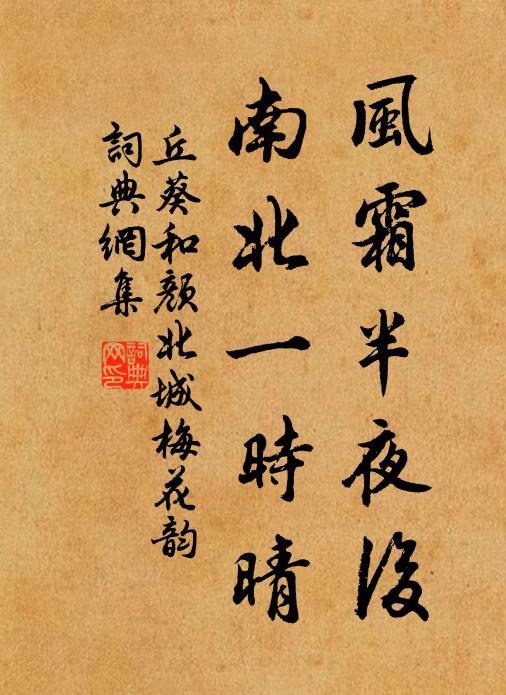 風霜半夜後
南北一時晴
丘葵和顏北城梅花韵
詞典網集
詞典網印